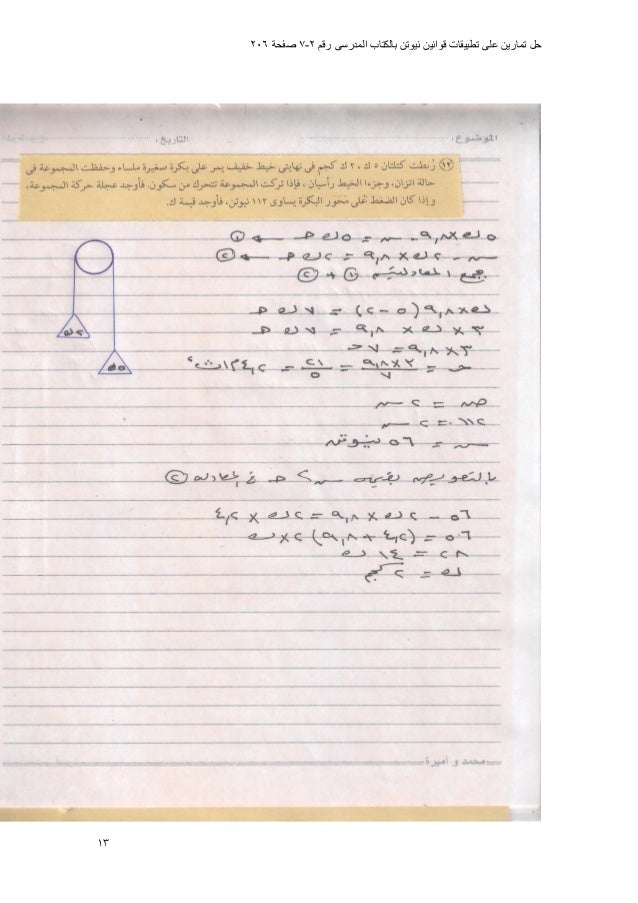 حل تمارين على تطبيقات قوانين نيوتن بالكتاب المدرسى رقم ٢-٧ صفحة ٢٠٦
الموضوع : التاريخ :
١٢ رُبطت كتلتان ٥ ك ، ٢ ك كجم فى نهايتى خيط خفيف يمر على بكرة صغيرة ملساء وحفظت المجموعة فى
حالة اتزان، وجزءا الخيط رأسيان ، فإذا تركت المجموعة تتحرك من سكون. فأوجد عجلة حركة المجموعة،
وإذا كان الضغط على محور البكرة يساوى ١١٢ نيوتن، فأوجد قيمة ك.
٥ ك × ٩,٨ - س = ٥ ك حـ ← ١
س - ٢ ك × ٩,٨ = ٢ ك حـ ← ٢
بجمع المعادلتين ١ + ٢
ك × ٩,٨ (٥ - ٢) = ٧ ك حـ
٣ × ك × ٩,٨ = ٧ ك حـ
٣ × ٩,٨ = ٧ حـ
حـ = ٣×٩,٨ / ٧ = ٢١ / ٥ = ٤,٢ م/ث٢
٢ ك
٥ ك
ض = ٢ س
١١٢ = ٢ س
س = ٥٦ نيوتن
بالتعويض بقيمة س ، حـ فى المعادلة ٢
٥٦ - ٢ ك × ٩,٨ = ٢ ك × ٤,٢
٥٦ = (٤,٢ + ٩,٨) ٢ × ك
٢٨ = ١٤ ك
ك = ٢ كجم
محمد و أميرة
١٣